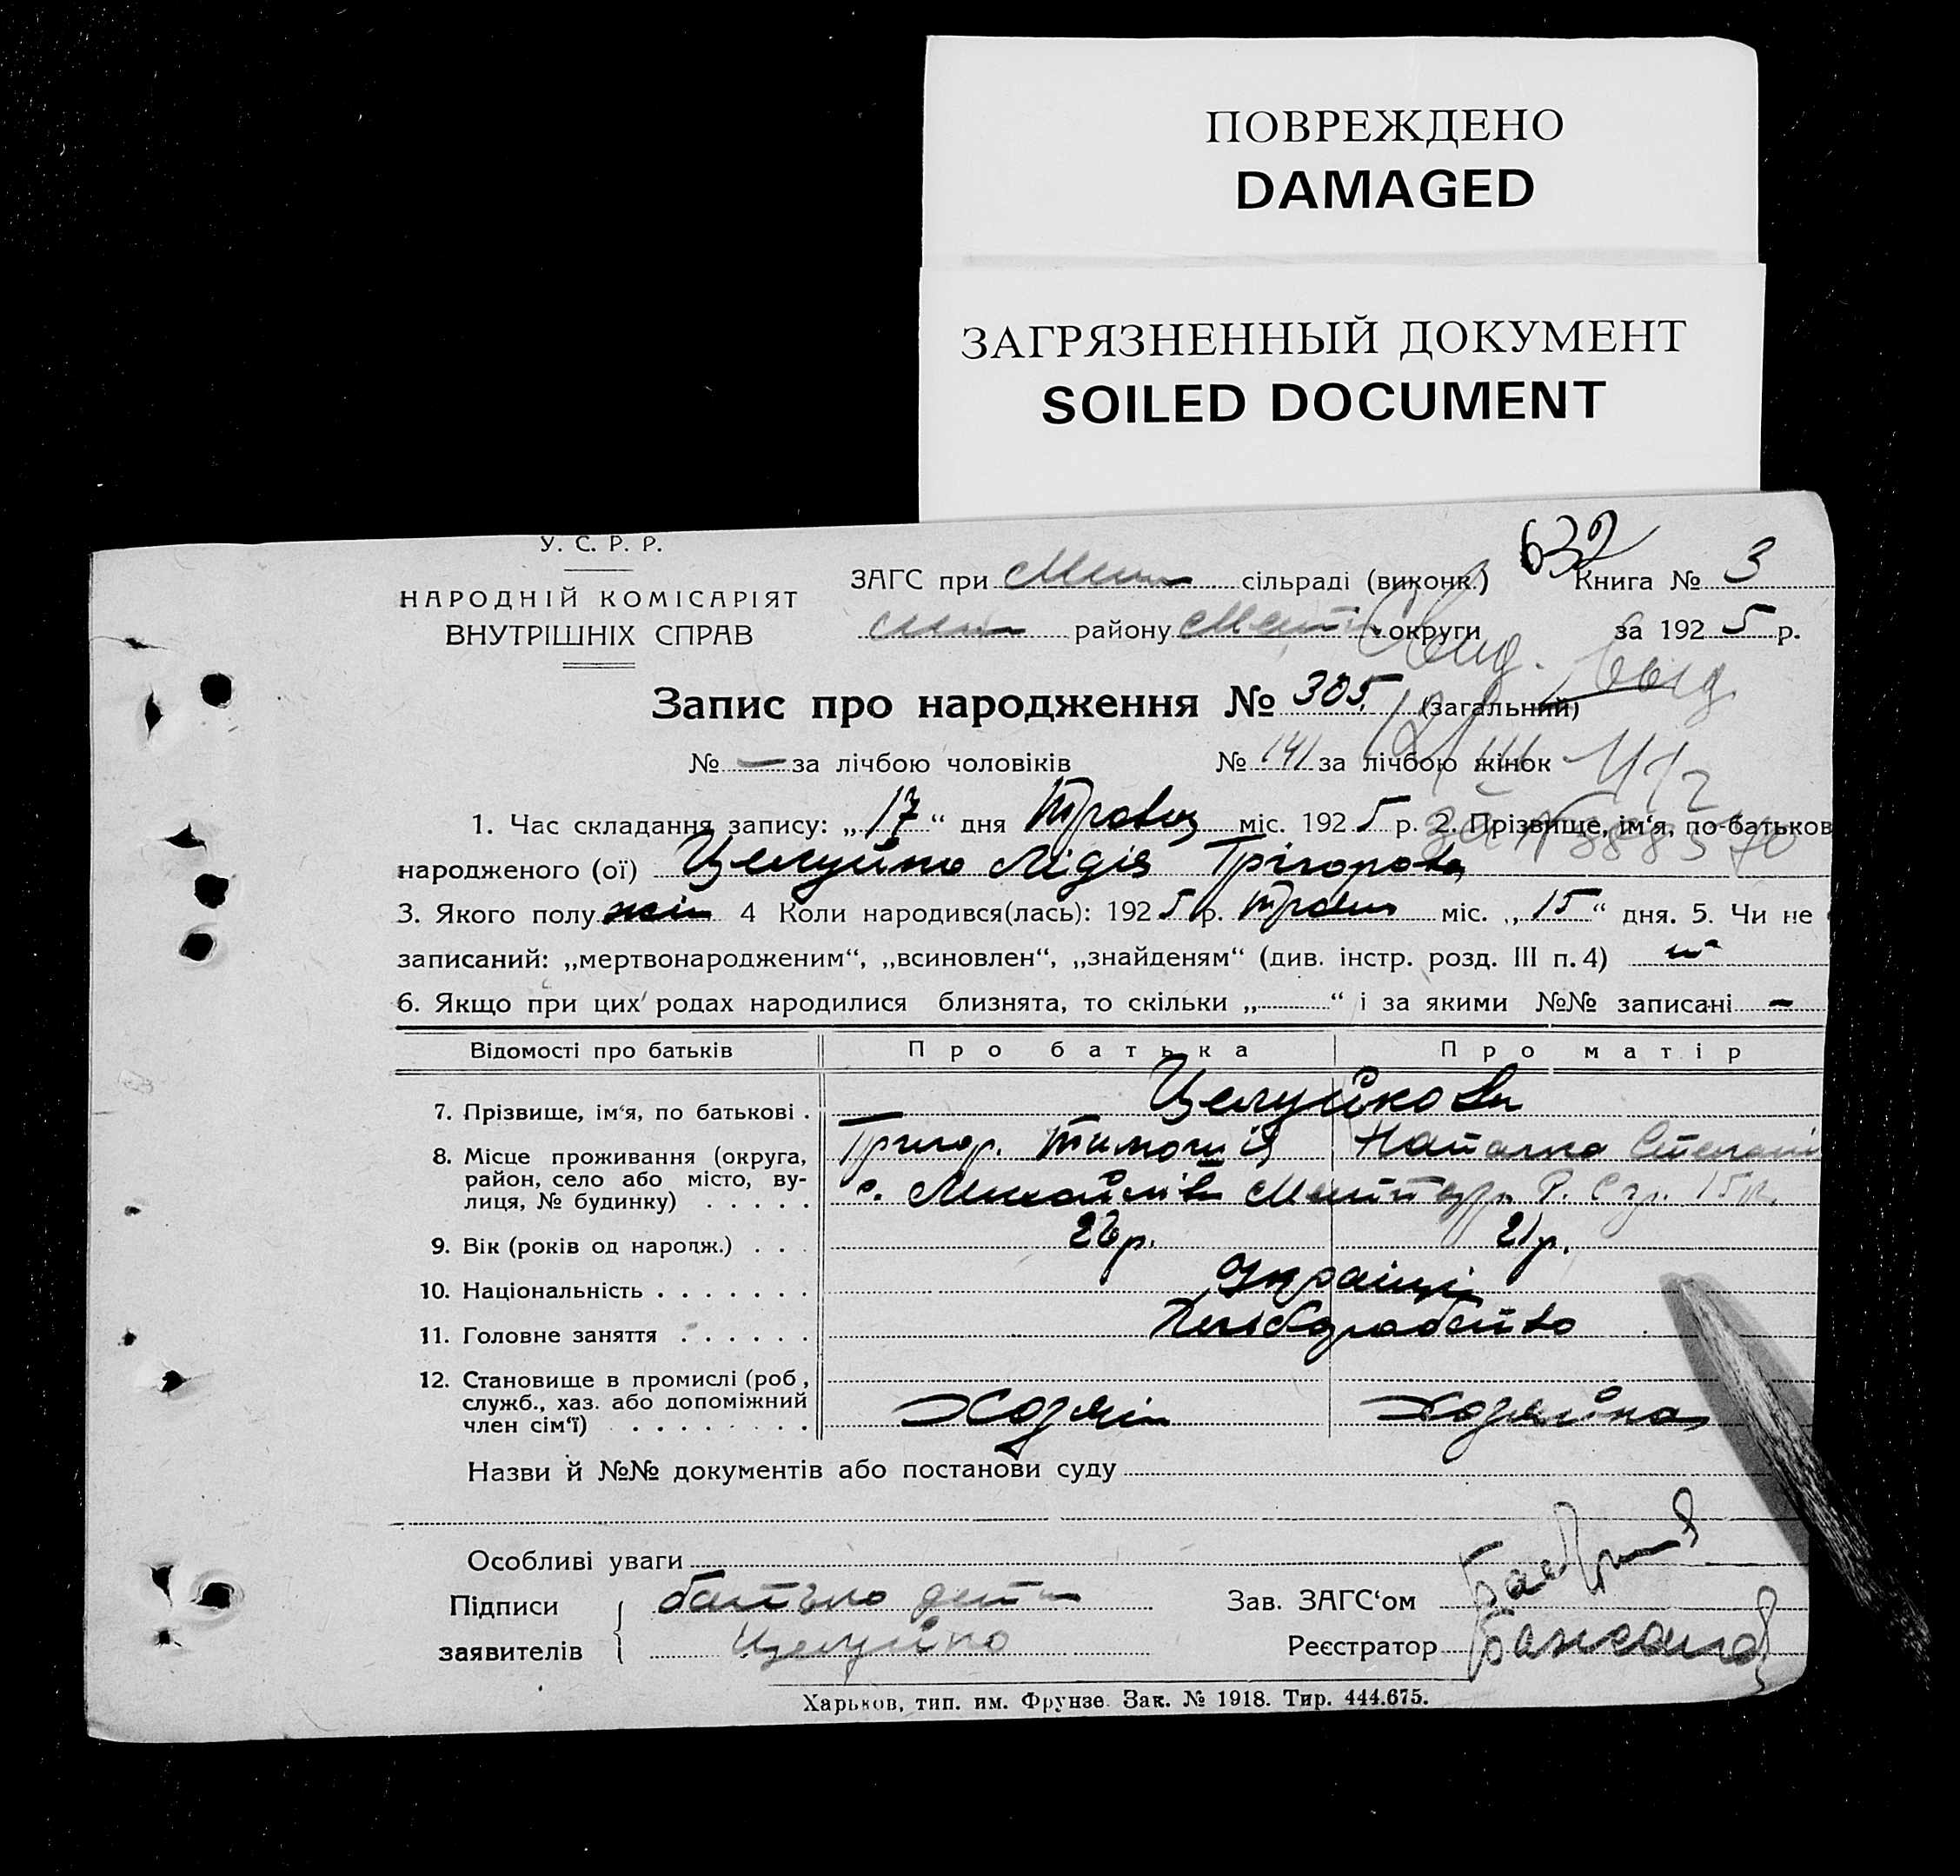 ПОВРЕЖДЕНО
DAMAGED
ЗАГРЯЗНЕННЫЙ ДОКУМЕНТ
SOILED DOCUMENT
632
У. С. Р. Р.
НАРОДНІЙ КОМІСАРІЯТ
ВНУТРІШНІХ СПРАВ
ЗАГС при сільраді (виконк.) Книга № 3
району округи за 1925 р.
Запис про народження № 305 (загальний)
№ — за лічбою чоловіків № 141 за лічбою жінок
1. Час складання запису: „17“ дня Травня міс. 1925 р. 2. Прізвище, ім‘я, по-батьков
народженого (ої) Целуйко Лідія Грігоровна
3. Якого полу жін 4 Коли народився(лась): 1925 р. Травня міс. „15“ дня. 5. Чи не
записаний: „мертвонародженим“, „всиновлен“, „знайденям“ (див. інстр. розд. III п. 4) ні
6. Якщо при цих родах народилися близнята, то скільки „ “ і за якими №№ записані —
Відомості про батьків Про батька Про матір
7. Прізвище, ім‘я, по батькові . Целуйкови
Григор. Тимофія Наталка Степанів
8. Місце проживання (округа,
район, село або місто, ву-
лиця, № будинку) . . . . . с. Михайлів
9. Вік (років од народж.) . . . 26 р. 21 р.
10. Національність . . . . . . . Українці
11. Головне заняття . . . . . . Хліборобство
12. Становище в промислі (роб,
служб., хаз. або допоміжний
член сім‘ї) . . . . . . . . Хозяїн Хозяйка
Назви й №№ документів або постанови суду
Особливі уваги
Підписи батько дети Зав. ЗАГС‘ом
заявителів Целуйко Реєстратор
Харьков, тип. им. Фрунзе. Зак. № 1918. Тир. 444.675.